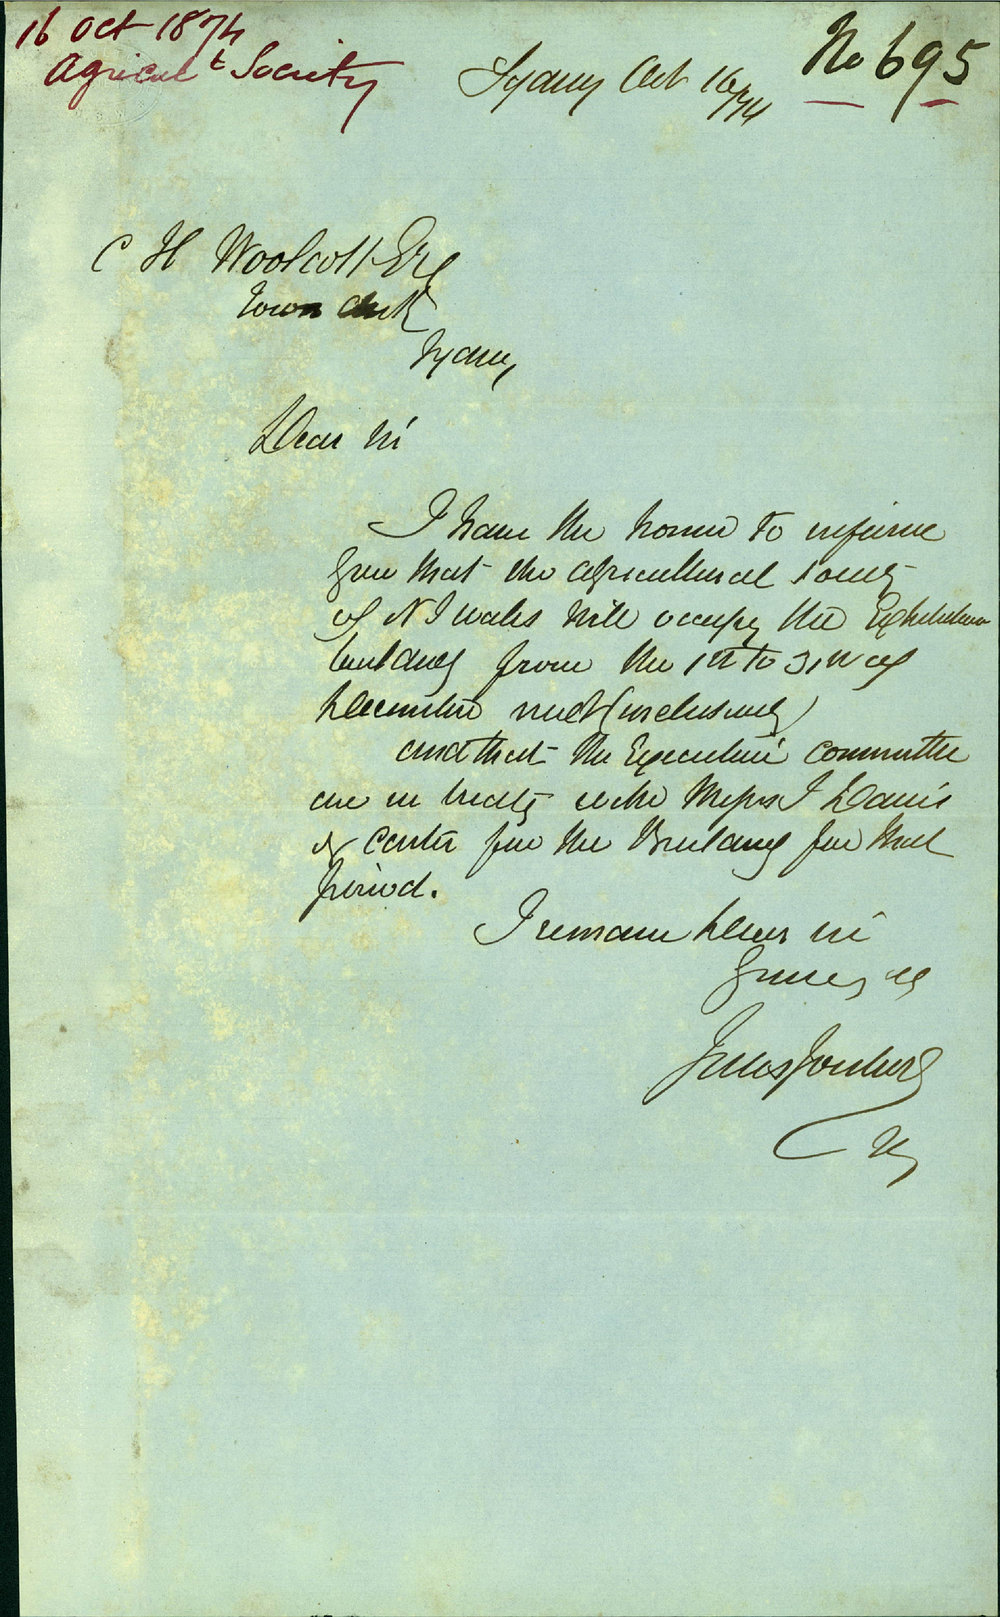 16 Oct 1874
Agricult Society
Sydney Oct 16/74
No 695
C H Woolcott Esq
Town Clerk
Sydney
Dear Sir
I have the honor to inform
you that the Agricultural Society
of N S Wales will occupy the Exhibition
building from the 1st to 31st of
December next (inclusively)
and that the Executive Committee
are in treaty with Messrs J Davis
& Carter for the Building for that
period.
I remain Dear Sir
Yours
Jules Joubert